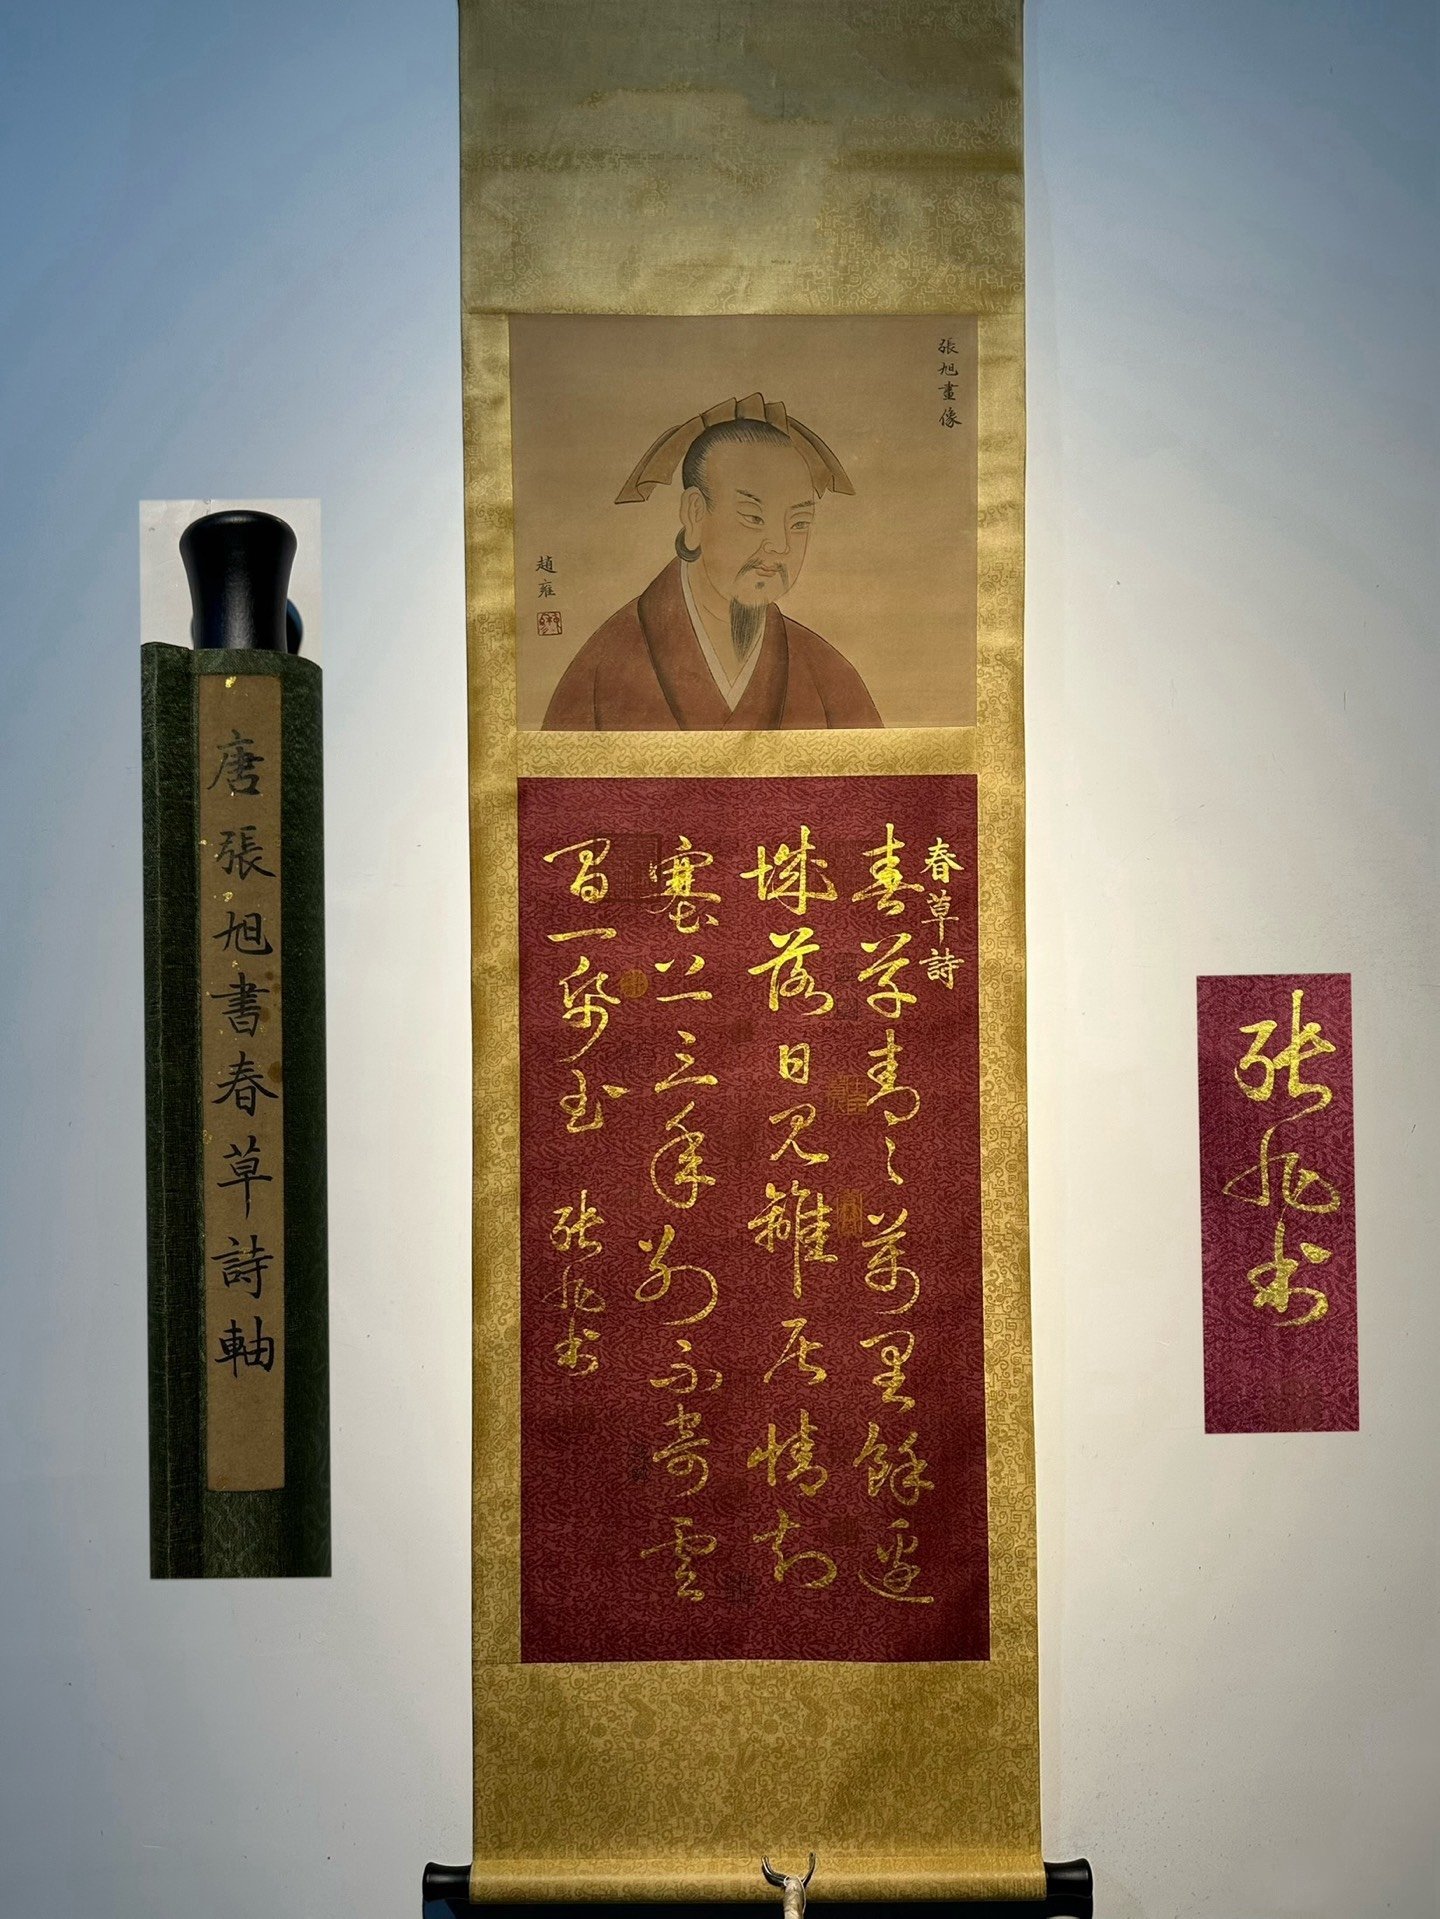 唐張旭書春草詩軸
張旭畫像
趙雍
春草詩
春草青々萬里餘邊
城落日見離居情知
塞上三年別不寄雲
間一紙書
張旭書
張旭書